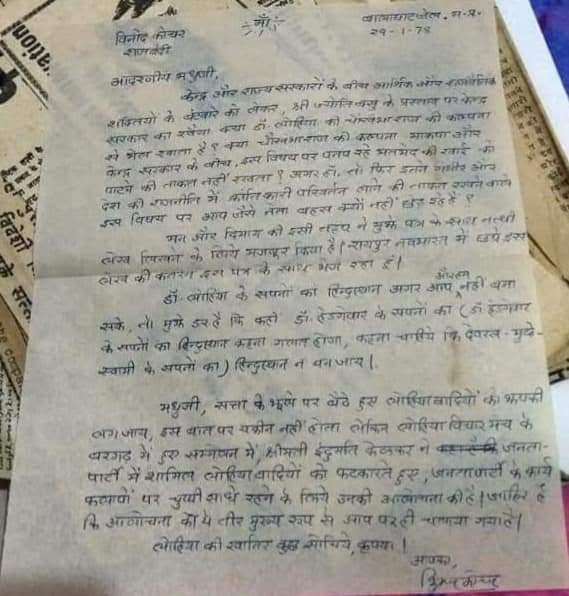 माँ
बालाघाट जेल. म.प्र.
29-1-78
विनोद कोचर
राजबंदी
आदरणीय मधुजी,
केन्द्र और राज्य सरकारों के बीच आर्थिक और राजनैतिक
शक्तियों के बंटवारे को लेकर, श्री ज्योति बसु के प्रस्ताव पर केन्द्र
सरकार का रवैया क्या डॉ. लोहिया की चौखंभा राज की कल्पना
से मेल खाता है? क्या चौखंभा राज की कल्पना माकपा और
केन्द्र सरकार के बीच, इस विषय पर पनप रहे मतभेद की खाई को
पाटने की ताकत नहीं रखता? अगर हाँ, तो फिर इतने गंभीर और
देश की राजनीति में क्रांतिकारी परिवर्तन लाने की ताकत रखने वाले
इस विषय पर आप जैसे नेता बहस क्यों नहीं छेड़ रहे हैं?
मन और दिमाग की इसी तड़प ने मुझे पत्र के साथ नत्थी
लेख लिखने के लिये मजबूर किया है। रायपुर नवभारत में छपे इस
लेख की कतरन इस पत्र के साथ भेज रहा हूँ।
डॉ. लोहिया के सपनों का हिन्दुस्थान अगर आप नहीं बना
सके, तो मुझे डर है कि कहीं डॉ. हेडगेवार के सपनों का (डॉ हेडगेवार
के सपनों का हिन्दुस्थान कहना गलत होगा, कहना चाहिये कि देवरस-मुळे-
स्वामी के सपनों का) हिन्दुस्थान न बन जाय।
मधुजी, सत्ता के झूले पर बैठे हुए लोहियावादियों को झपकी
लग जाय, इस बात पर यकीन नहीं होता लेकिन लोहिया विचार मंच के
बरगढ़ में हुए सम्मेलन में, श्रीमती इंदुमति केळकर ने जनता-
पार्टी में शामिल लोहियावादियों को फटकारते हुए, जनतापार्टी के कार्य
कलापों पर चुप्पी साधे रहने के लिये उनकी आलोचना की है। जाहिर है
कि आलोचना का ये तीर मुख्य रूप से आप पर ही चलाया गया है।
लोहिया की खातिर कुछ सोचिये, कृपया।
आपका,
विनोद कोचर